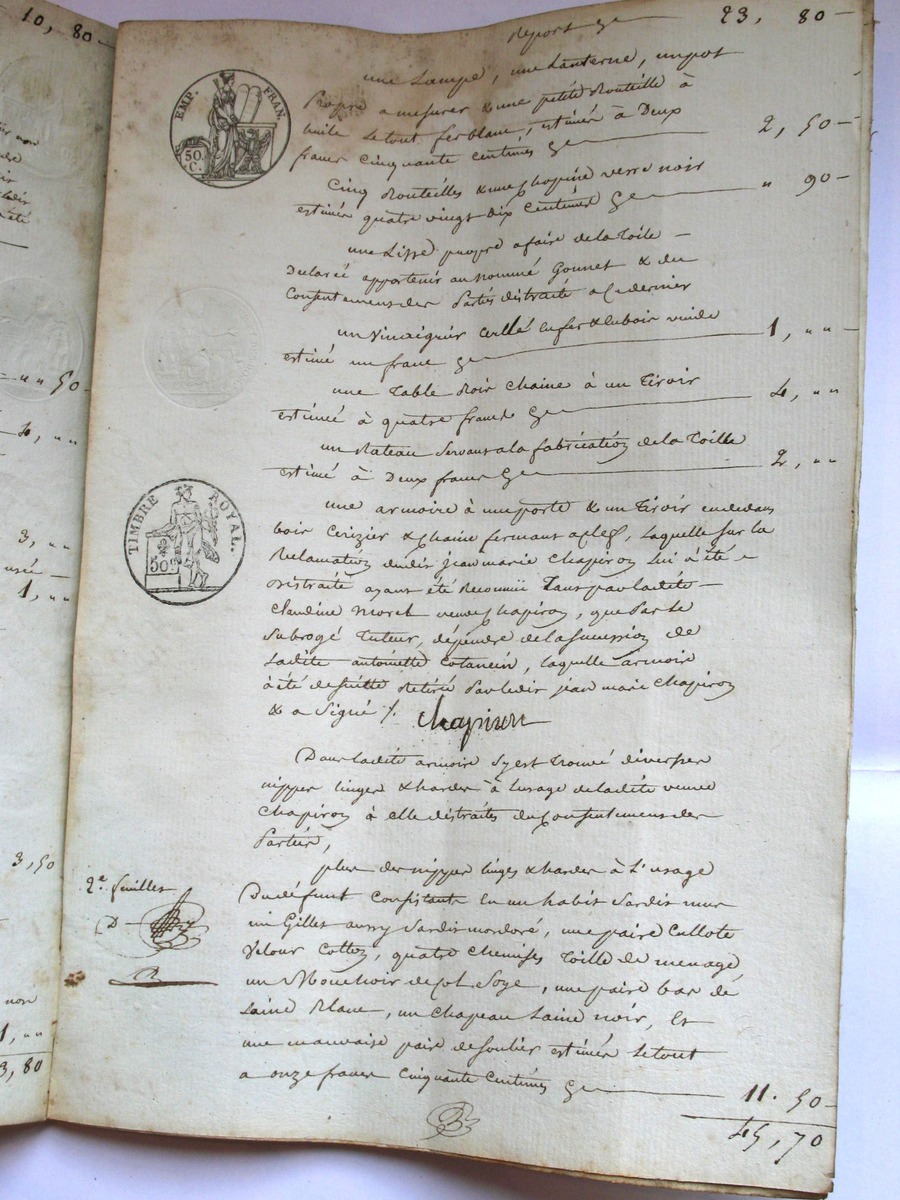 10, 80
Report 23, 80
une Lampe, une Lanterne, un pot
EMP. FRAN.
50. C.
propre a mesurer & une petite Bouteille à
huile le tout ferblanc, estimés à Deux
francs Cinquante Centimes 2, 50
Cinq Bouteilles & une Chopine verre noir
estimés quatre vingt dix Centimes " 90
une Lisse propre a faire de la Toile
Declarée appartenir au nommé Gonnet & du
Consentement des Partés distraité a ce dernier
un Vinaigrier Cerclé en fer & en bois vuide
estimé un franc 1, " "
une Table Bois Chaine à un Tiroir
estimée à quatre francs 4, " "
un Rateau Servant a la fabrication de la Toille
estimé à Deux francs 2, " "
TIMBRE ROYAL.
50c
une armoire à une porte & un Tiroir en dedans
bois Cerizier & Chaine fermant a clef, laquelle sur la
Reclamation dudit jean marie Chapiron lui à été
distraite ayant été Reconnüe Tant par ladite
Claudine Moret veuve Chapiron, que Par le
Subrogé Tuteur, dépendre de la Succession de
Ladite antoinette Cotancin, laquelle armoire
à été de suitte Retirée Par ledit jean marie Chapiron
& a Signé /. Chapiron
Dans ladite armoire s'y est Trouvé diverses
nippes linges & hardes à l'usage de ladite veuve
Chapiron à elle distraites du Consentement des
Parties,
plus des nippes linges & hardes à L'usage
2e. feuilles
Du défunt Consistants En un habit Sardis mur
un Gillet aussy Sardis mordoré, une paire Cullote
Velour Cotton, quatre Chemises Toille de menage
un Mouchoir de col Soye, une paire bas de
Laine Blanc, un Chapeau Laine noir, Et
une mauvaise paire de soulier estimés Le tout
a onze francs Cinquante Centimes 11. 50
45, 70
50
4, " "
3, " "
1, " "
3, 50
non
1, " "
3, 80